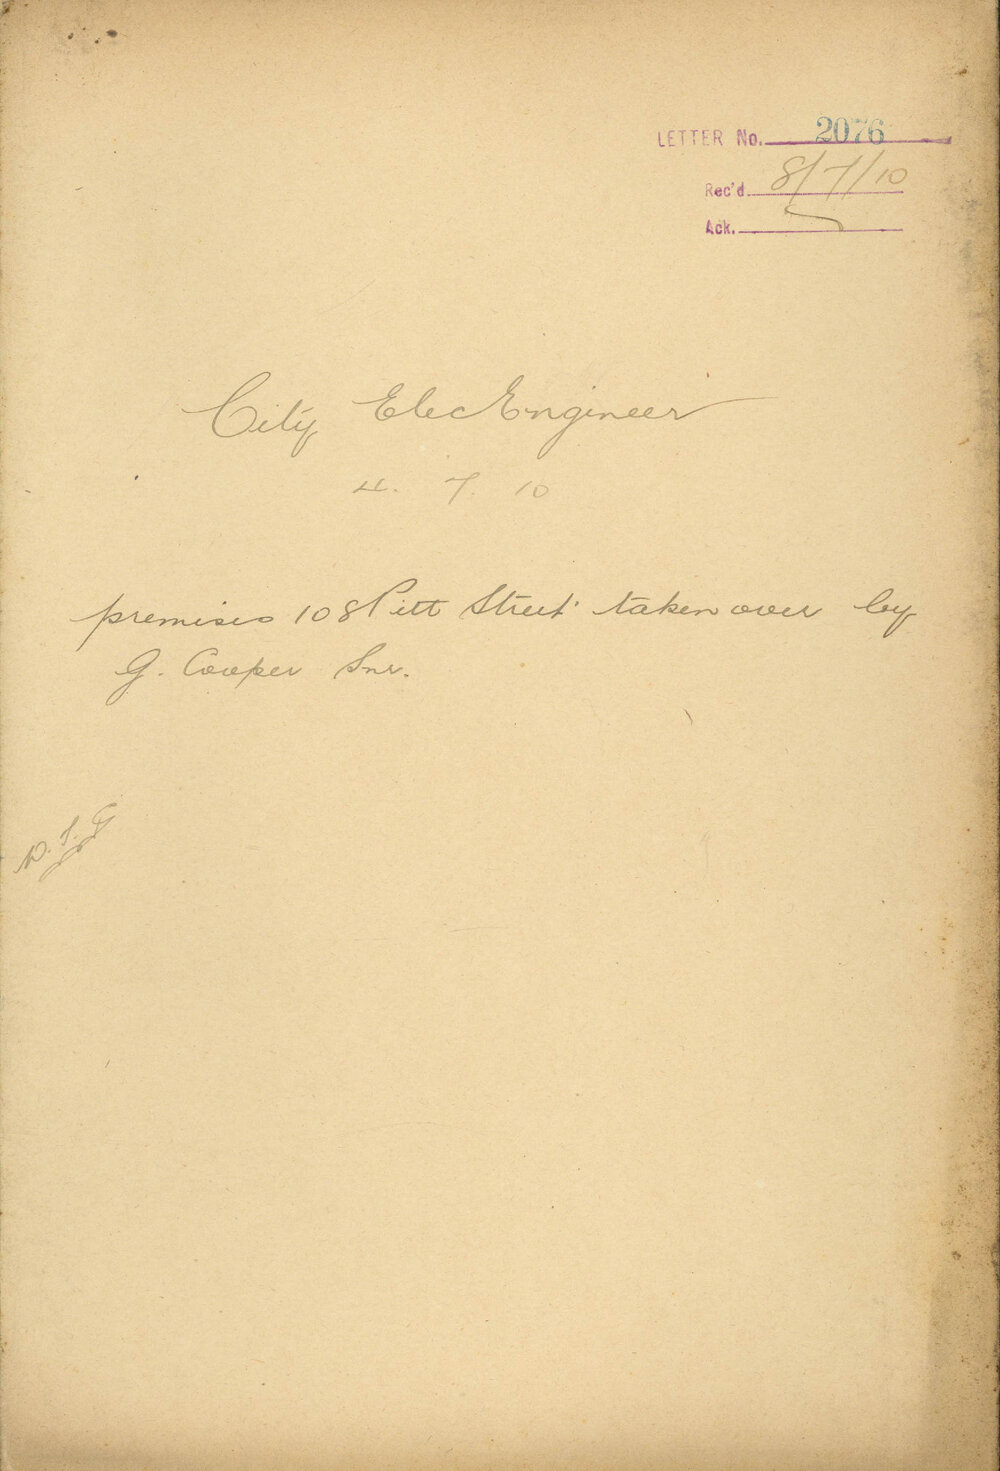 LETTER No. 2076
Rec'd. 8/7/10
Ack.
City Elec Engineer
4. 7. 10
premises 108 Pitt Street taken over by
G. Cooper Snr.